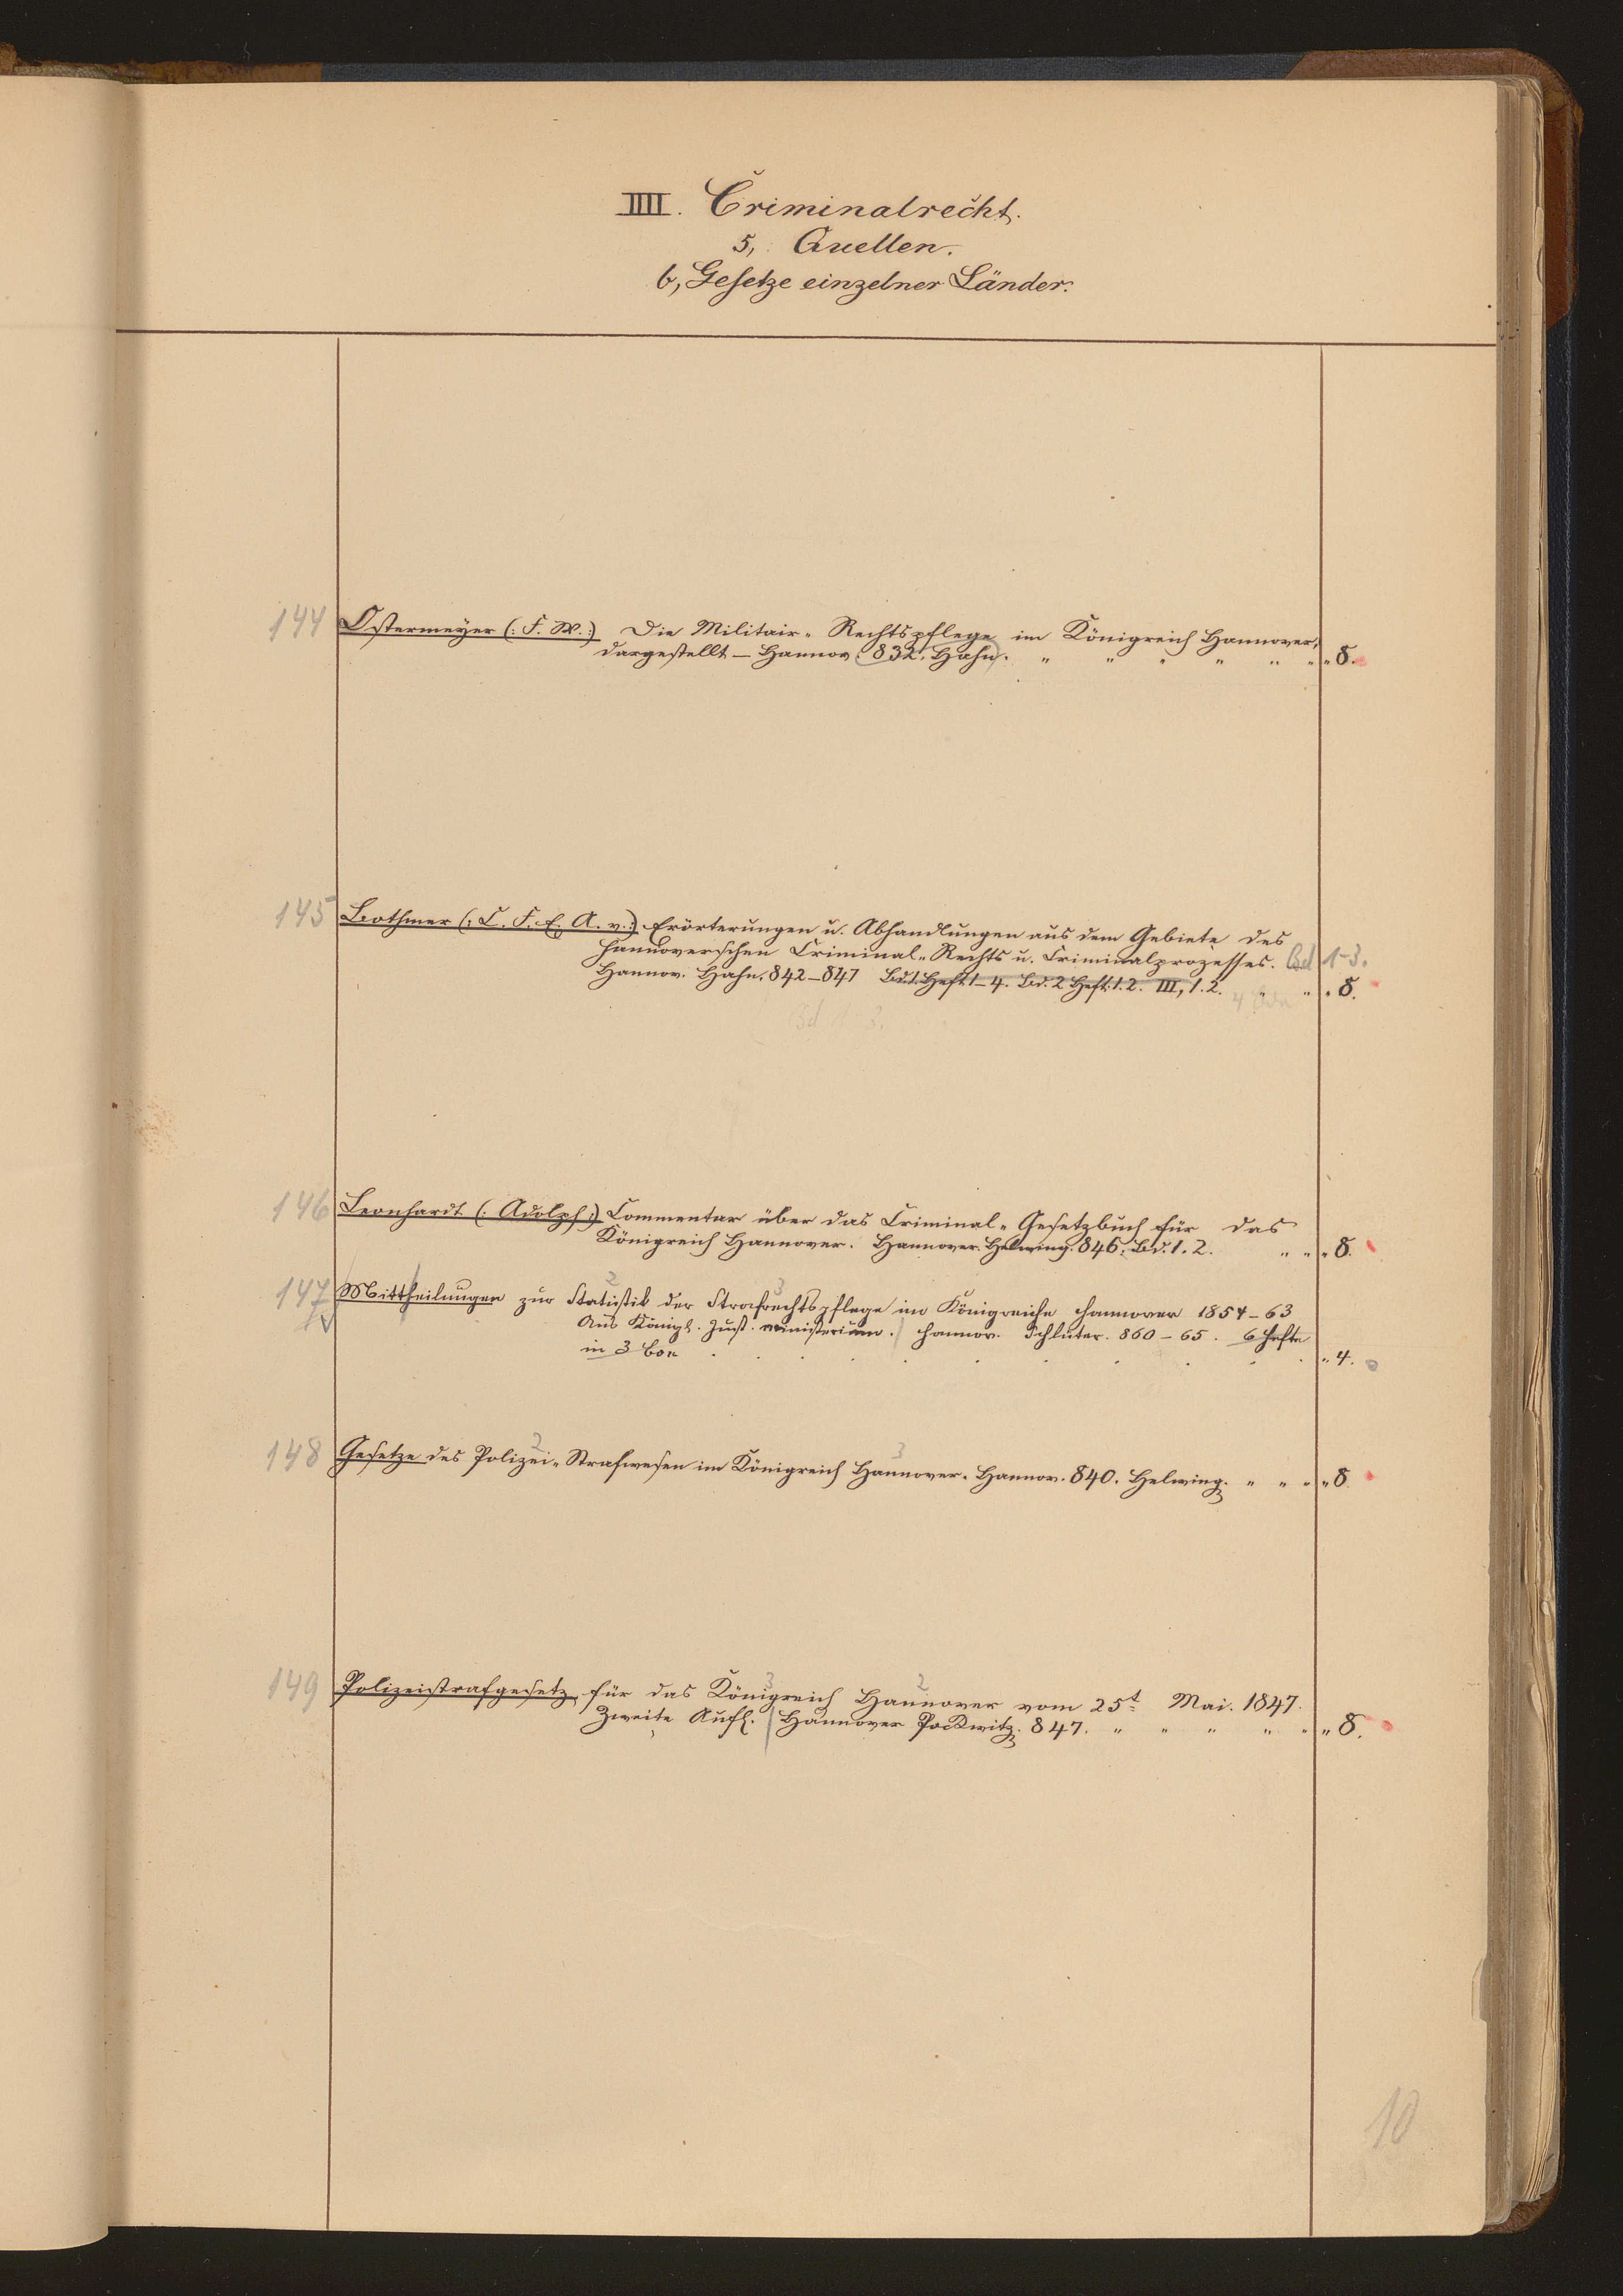 IIII. Criminalrecht.
5, Quellen.
b, Gesetze einzelner Länder.
144 Ostermeyer (: F. W. :) Die Militair-Rechtspflege im Königreich Hannover,
dargestellt — Hannov. 832. Hahn. " " " " " " " 8.
145 Bothmer (: C. F. E. A. v. :) Erörterungen u. Abhandlungen aus dem Gebiete des
hannoverschen Criminal-Rechts u. Criminalprozesses. Bd 1-3.
Hannov. Hahn. 842–847 Bd. 1. Heft 1–4. Bd. 2 Heft. 1. 2. III, 1. 2. " " " 8.
Bd 1-3.
146 Leonhardt (: Adolph :) Commentar über das Criminal-Gesetzbuch für das
Königreich Hannover. Hannover. Helwing. 846. Bd. 1. 2. " " " 8.
147 Mittheilungen zur Statistik der Strafrechtspflege im Königreiche Hannover 1854–63
Aus Königl. Just. ministerium. Hannov. Schlüter. 860–65. 6 Hefte
in 3 Bdn . . . . . . . . " 4.
148 Gesetze des Polizei-Strafwesen im Königreich Hannover. Hannov. 840. Helwing. " " " " 8.
149 Polizeistrafgesetz für das Königreich Hannover vom 25t Mai. 1847.
Zweite Aufl. Hannover Pockwitz. 847. " " " " " " 8.
10